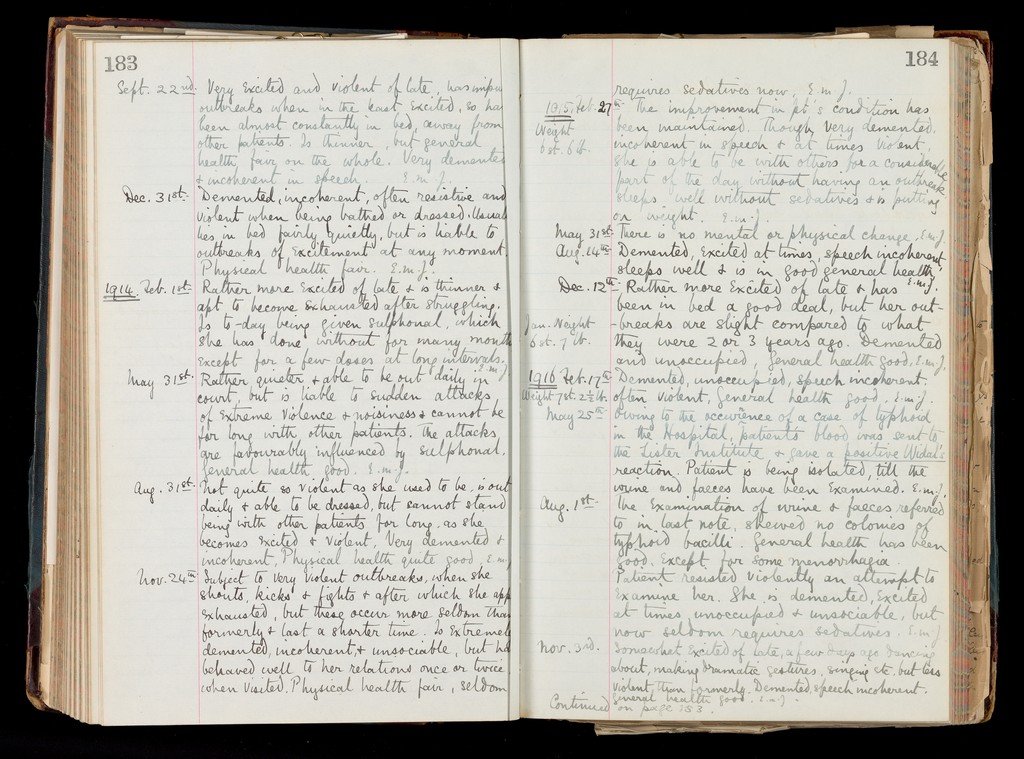 183
Sept. 22nd. Very Excited and violent of late, has
outbreaks when in the least Excited, so has
been almost constantly in bed, away from
other patients. Is thinner, but general
health fair on the whole. Very demented
& incoherent in speech. E.M.J.
Dec. 31st. Demented, incoherent, often resistive and
violent when being bathed or dressed. Usually
lies in bed fairly quietly, but is liable to
outbreaks of Excitement at any moment.
Physical health fair. E.M.J.
1914. Feb. 1st. Rather more Excited of late & is thinner &
apt to become Exhausted after struggling.
Is to-day being given Sulphonal, which
she has done without for many months
Except for a few doses at long intervals.
E.M.J.
May 31st. Rather quieter & able to be out daily in
court, but is liable to sudden attacks
of Extreme Violence & noisiness & cannot be
for long with other patients. The attacks
are favourably influenced by Sulphonal.
General health good. E.M.J.
Aug. 31st. Not quite so violent as she used to be, is out
daily & able to be dressed, but cannot stand
being with other patients for long, as she
becomes Excited & Violent, Very demented &
incoherent, Physical health quite good, E.M.J.
Nov. 24th Subject to very Violent outbreaks, when she
shouts, kicks & fights & after which she
Exhausted, but these occur more seldom than
formerly & last a shorter time. Is Extremely
demented, incoherent, & unsociable, but has
behaved well to her relations once or twice
when Visited. Physical health fair, seldom
184
requires sedatives now, E.M.J.
1915. Feb. 27th. The improvement in pt's condition has
Weight
6st. 6lb.
been maintained. Though very demented,
incoherent in speech & at times violent,
she is able to be with others for a considerable
part of the day without having an outbreak
sleeps well without sedatives & is putting
on weight. E.M.J.
May 31st. There is no mental or physical change. E.M.J.
Aug. 14th Demented, Excited at times, speech incoherent,
sleeps well & is in good general health,
E.M.J.
Dec. 12th Rather more Excited of late & has
been in bed a good deal, but her out-
Jan. Weight
6st. 7lb.
-breaks are slight compared to what
they were 2 or 3 years ago. Demented
and unoccupied, General health good, E.M.J.
1916 Feb. 17th Demented, unoccupied, speech incoherent.
Weight 7st. 2½lb.
Often violent, General health good. E.M.J.
May 25th Owing to the occurence of a case of typhoid
in the Hospital, patient's blood was sent to
the Lister Institute & gave a positive Widal's
reaction. Patient is being isolated, till the
urine and faeces have been Examined. E.M.J.
Aug. 1st. The Examination of urine & faeces, referred
to in last note, shewed no colonies of
typhoid bacilli. General health has been
good, Except for some menorrhagia.
Patient resisted violently an attempt to
Examine her. She is demented, Excited
at times, unoccupied & unsociable, but
now seldom requires sedatives. E.M.J.
Nov. 3rd. Somewhat Excited of late, a few days ago dancing
about, making dramatic gestures, singing etc, but less
violent than formerly. Demented, speech incoherent.
General health good. E.M.J.
Continued on page 153.